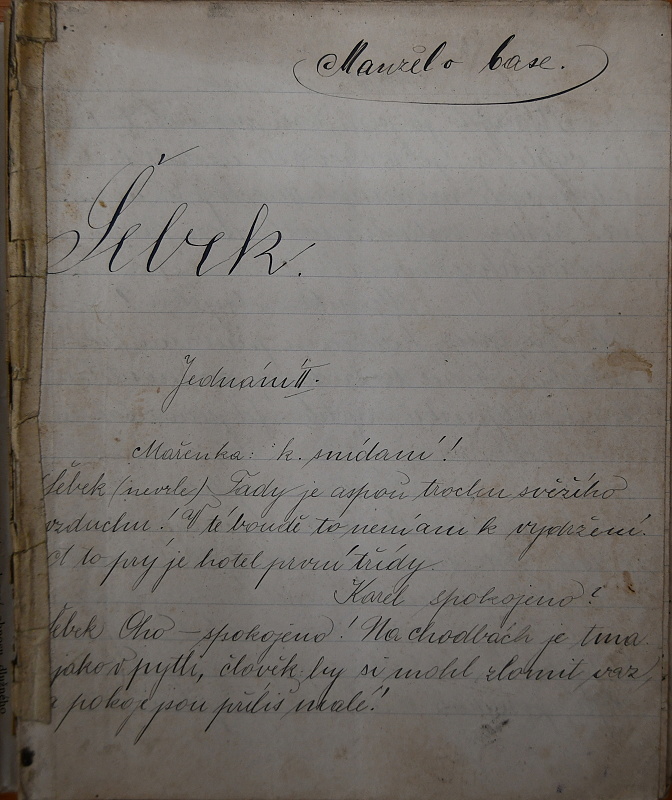 Manžel o base.
Šebek.
Jednání II.
Mařenka: k. snídaní!
Šebek (nevrle) Tady je aspoň trochu svěžího
vzduchu! V té boudě to není ani k vydržení.
A to prý je hotel první třídy.
Karel spokojeno?
Šebek Oho – spokojeno! Na chodbách je tma
jako v pytli, člověk by si mohl zlomit vaz,
a pokoje jsou příliš malé!